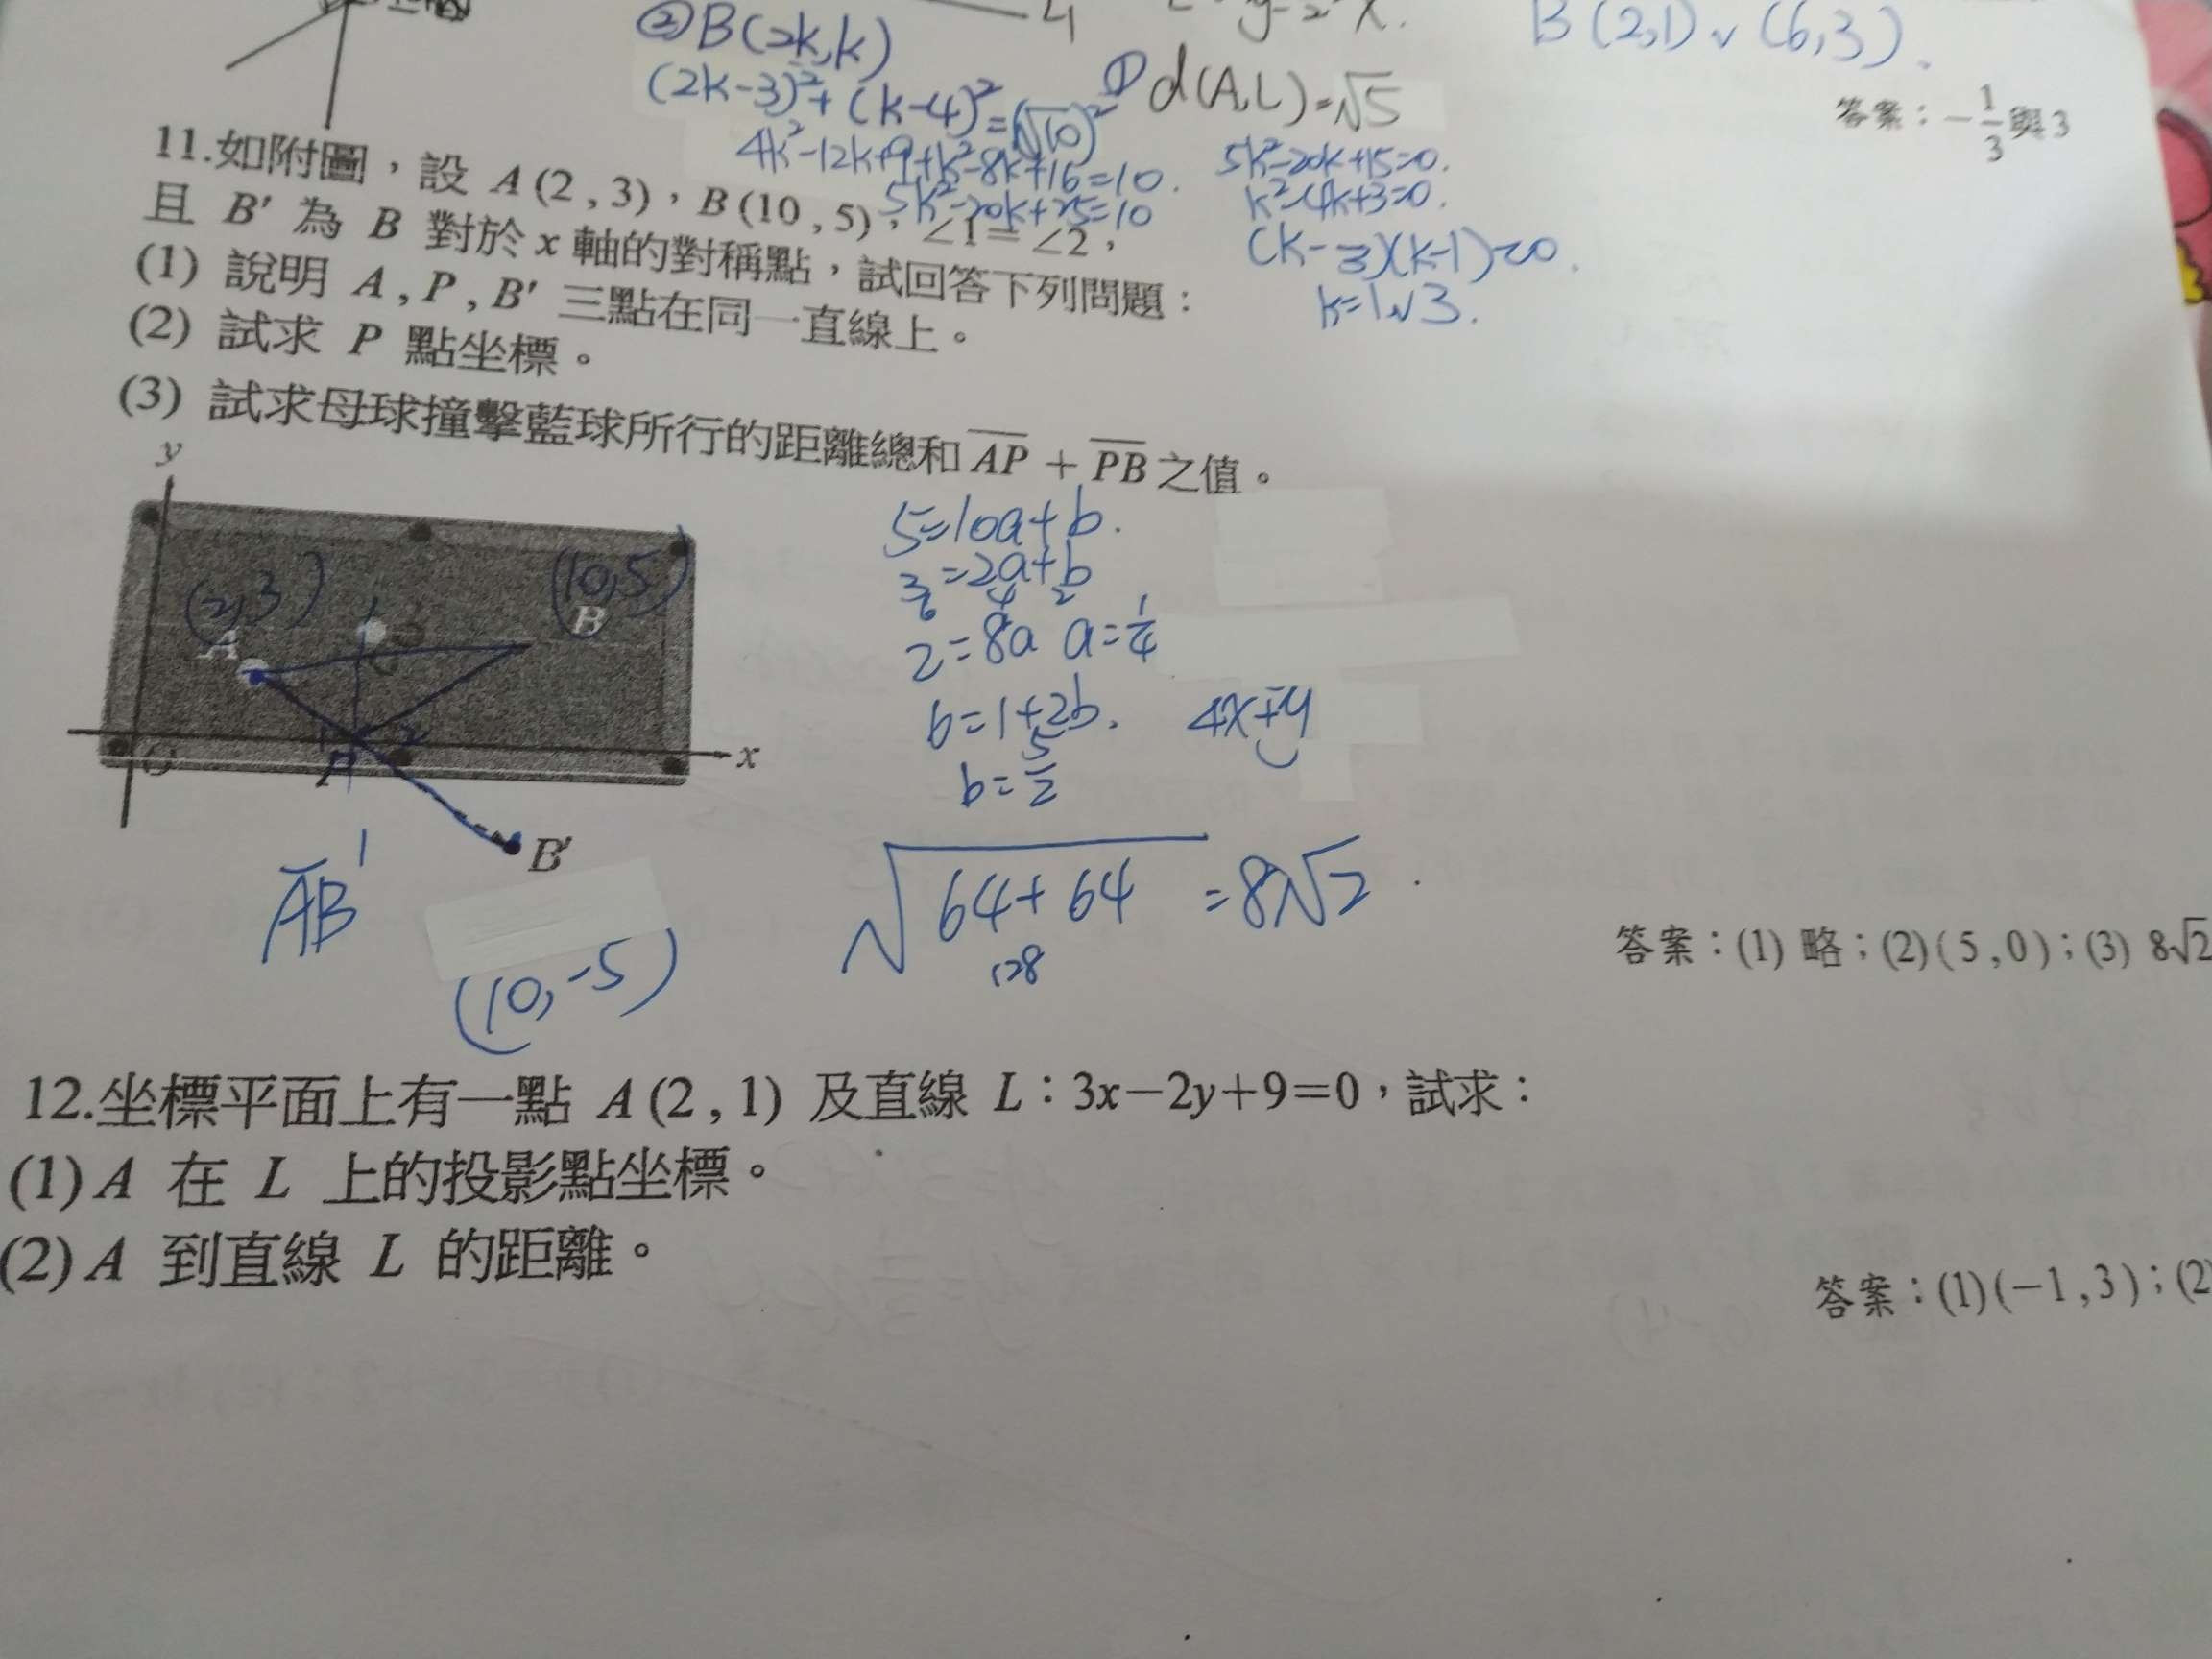 ②B(2k,k)
(2k-3)²+(k-4)²=(√10)²
4k²-12k+9+k²-8k+16=10.
5k²-20k+25=10
① d(A,L)=√5
5k²-20k+15=0.
k²-4k+3=0.
(k-3)(k-1)=0.
k=1,3.
B(2,1)、(6,3).
答案：-1/3與3
11.如附圖，設 A(2,3)，B(10,5)，∠1=∠2，
且 B′ 為 B 對於 x 軸的對稱點，試回答下列問題：
(1) 說明 A,P,B′ 三點在同一直線上。
(2) 試求 P 點坐標。
(3) 試求母球撞擊藍球所行的距離總和 AP + PB 之值。
y
(2,3)
(10,5)
A
B
1
2
P
x
O
B′
AB′
(10,-5)
5=10a+b.
3=2a+b
6 4 2
2=8a a=1/4
6=1+2b.
b=5/2
√64+64 =8√2
128
答案：(1) 略；(2)(5,0)；(3) 8√2
12.坐標平面上有一點 A(2,1) 及直線 L：3x-2y+9=0，試求：
(1) A 在 L 上的投影點坐標。
(2) A 到直線 L 的距離。
答案：(1)(-1,3)；(2)